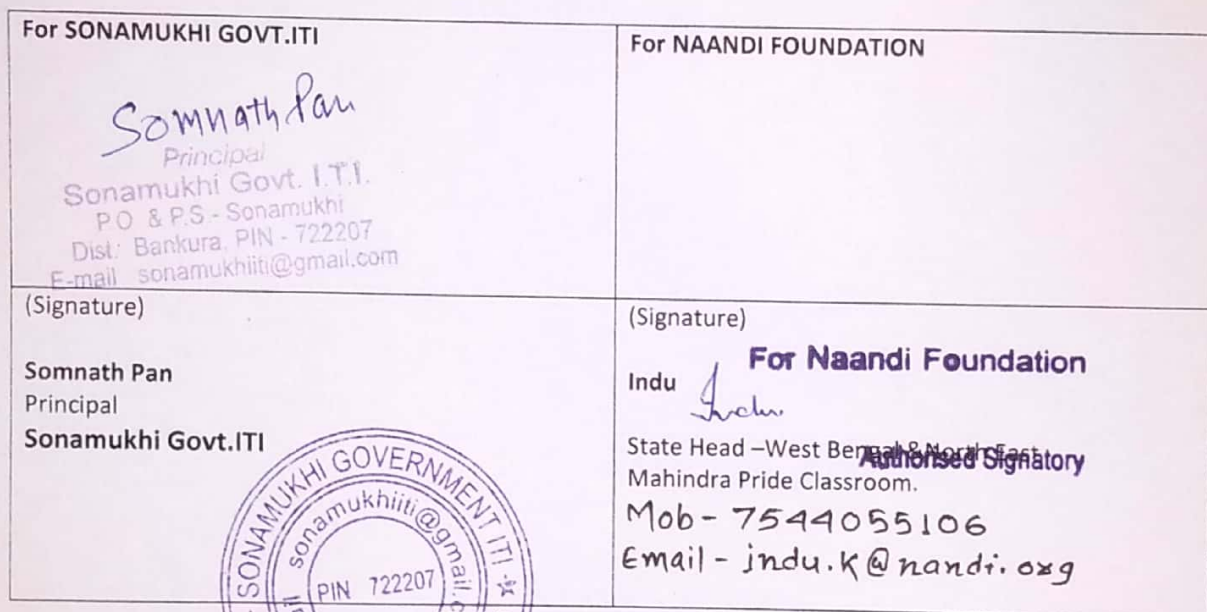 For SONAMUKHI GOVT.ITI
Somnath Pan
Principal
Sonamukhi Govt. I.T.I.
P.O & P.S - Sonamukhi
Dist.: Bankura, PIN - 722207
E-mail sonamukhiiti@gmail.com
(Signature)
Somnath Pan
Principal
Sonamukhi Govt.ITI
SONAMUKHI GOVERNMENT ITI
sonamukhiiti@gmail.c
PIN 722207
For NAANDI FOUNDATION
(Signature)
For Naandi Foundation
Indu Indu
State Head –West Bengal & North East
Authorised Signatory
Mahindra Pride Classroom.
Mob - 7544055106
Email - indu.k@nandi.org